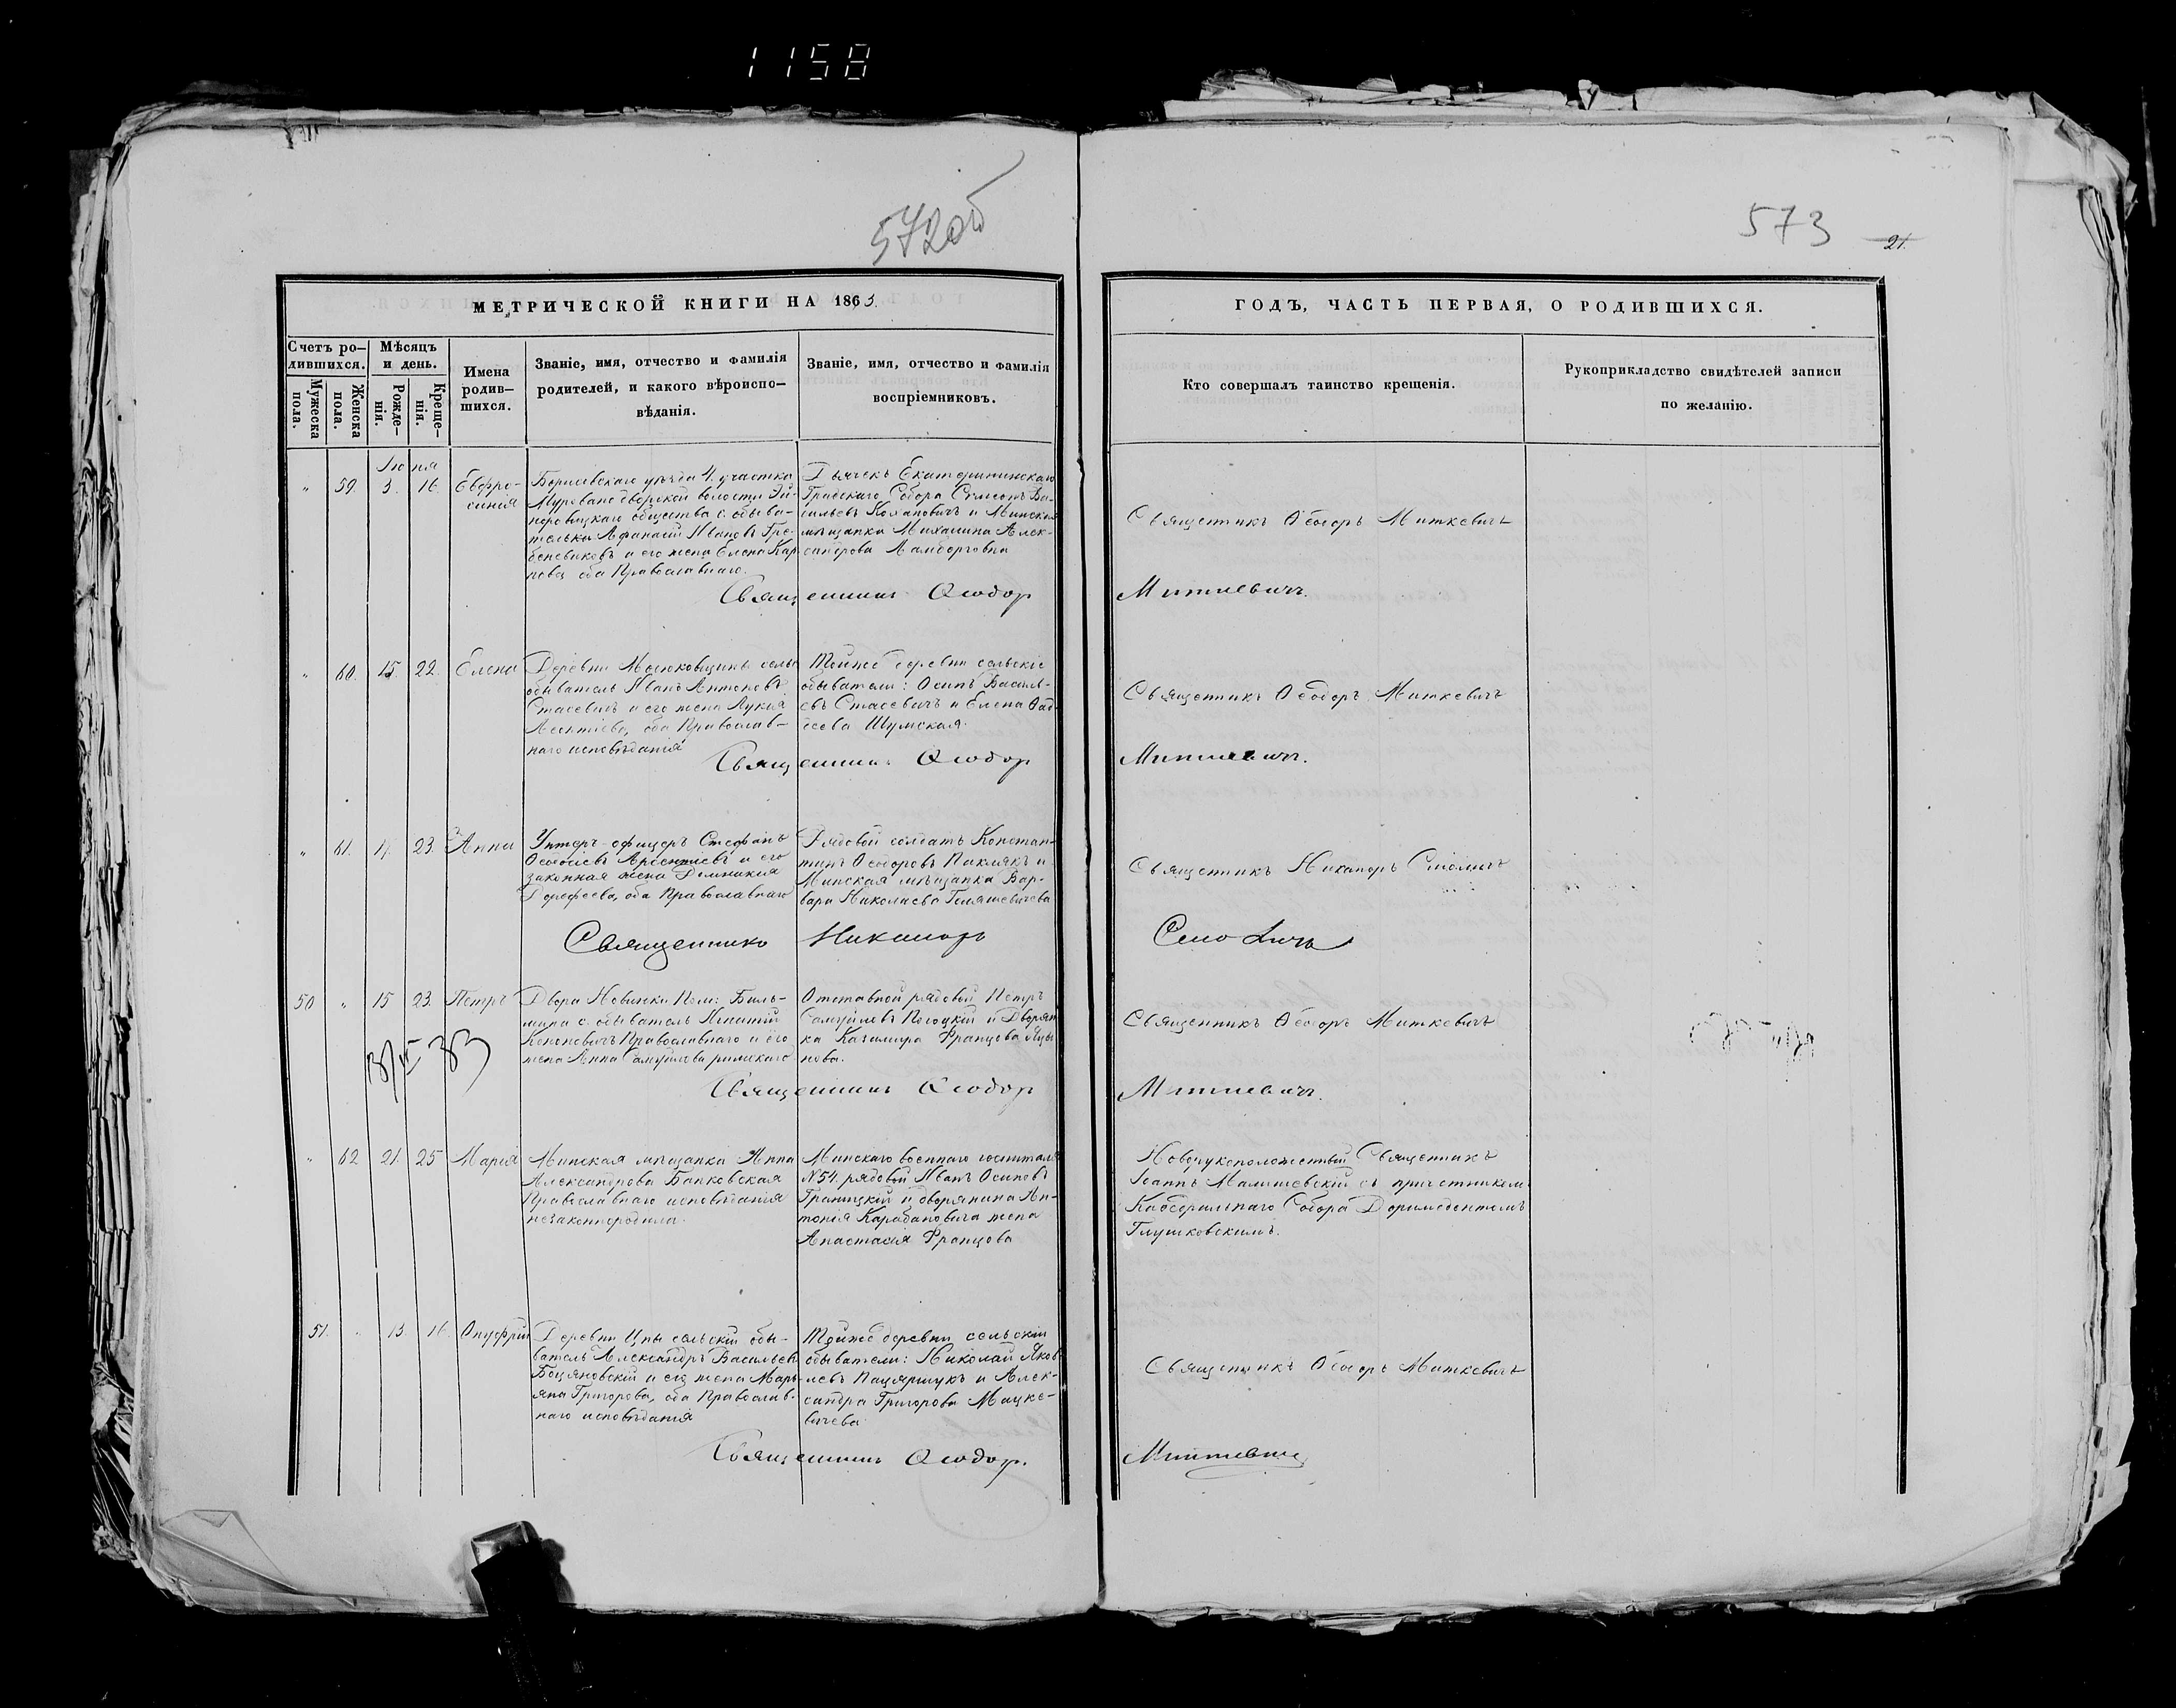 1158
572об
573
21.
МЕТРИЧЕСКОЙ КНИГИ НА 1863.
ГОДЪ, ЧАСТЬ ПЕРВАЯ, О РОДИВШИХСЯ.
Счетъ ро-
дившихся.
Мужеска
пола.
Женска
пола.
Мѣсяцъ
и день.
Рожде-
нія.
Креще-
нія.
Имена
родив-
шихся.
Званіе, имя, отчество и фамилія
родителей, и какого вѣроиспо-
вѣданія.
Званіе, имя, отчество и фамилія
воспріемниковъ.
Кто совершалъ таинство крещенія.
Рукоприкладство свидѣтелей записи
по желанію.
Іюня
" 59. 3. 16. Евфро-
синія
Борисовскаго уѣзда 4. участка
волости
общества с. обыва-
Афанасій Ивановъ Гре-
и его жена Елена Кар
пова оба Православнаго.
Дьячекъ Екатерининскаго
Градскаго Собора Симеонъ Ва-
сильевъ и Минская
мѣщанка Михалина Алек-
сандрова
Священникъ Ѳеодоръ Миткевичъ
Священникъ Ѳеодоръ Миткевичъ.
" 60. 15. 22. Елена
Деревни сельс
обыватель Иванъ Антоновъ
Стасевичъ и его жена Лукія
Леонтіева, оба Православ-
наго исповѣданія
Тойже деревни сельскіе
обыватели: Осипъ Василь-
евъ Стасевичъ и Елена Фад-
деева Шумская.
Священникъ Ѳеодоръ Миткевичъ
Священникъ Ѳеодоръ Миткевичъ.
" 61. 23. Анна
Унтеръ-офицеръ Стефанъ
Арсентіевъ и его
законная жена Домникія
Дорофеева, оба Православнаго
Рядовой солдатъ Констан-
тинъ Ѳеодоровъ и
Минская мѣщанка Вар-
вара Николаева
Священникъ Никаноръ Смоличъ
Священникъ Никаноръ Смоличъ
50 " 15 23. Петръ
Двора Новинки Пом:
с. обыватель Игнатій
Кононовичъ Православнаго и его
жена Анна Самуилова римскаго
Отставной рядовой Петръ
Самуйловъ и Дворян
ка Казимира Францова
нова.
Священникъ Ѳеодоръ Миткевичъ
Священникъ Ѳеодоръ Миткевичъ.
" 62 21. 25 Марія
Минская мѣщанка Анна
Александрова Банковская
Православнаго исповѣданія
незаконнородила.
Минскаго военнаго госпиталя
№54. рядовой Иванъ Осиповъ
Границкій и дворянина Ан-
тонія Карабановича жена
Анастасія Францова
Новорукоположенный Священникъ
Іоаннъ Малишевскій съ причетникомъ
Кафедральнаго Собора Доримедонтомъ
Глушковскимъ.
51. " 13. 16. Онуфрій
Деревни Цны сельскій обы-
ватель Александръ Васильевъ
и его жена Марь-
яна Григорова, оба Православ-
наго исповѣданія
Тойже деревни сельскіи
обыватели: Николай Яков-
левъ и Алек-
сандра Григорова Мацке-
вичева
Священникъ Ѳеодоръ Миткевичъ
Священникъ Ѳеодоръ. Миткевичъ